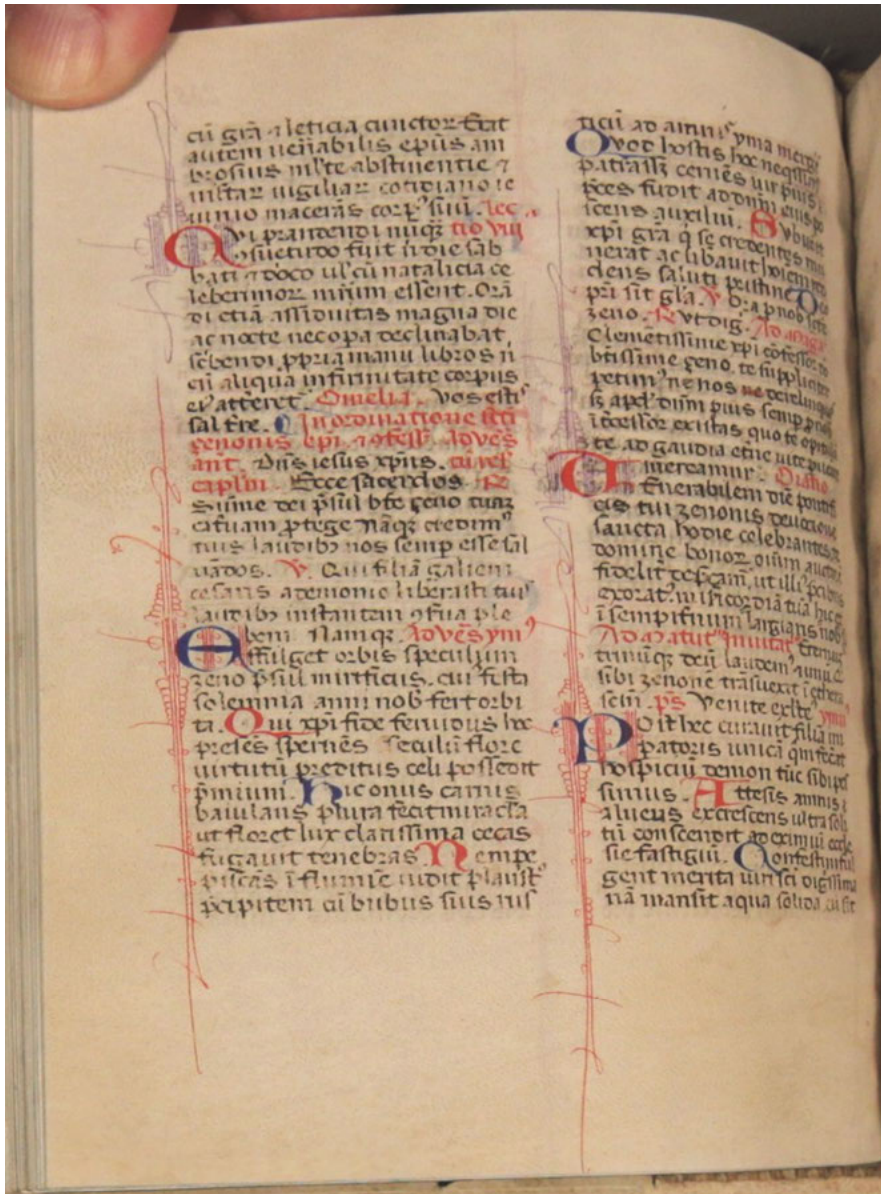 cū grā ⁊ leticia cunctoꝝ. Erat
autem uen̄abilis ep̄us am
brosius ml̄te abstinentie ⁊
instar uigiliaꝝ cotidiano ie
iunio macerās corpꝰ suū. lec
Qvi prandendi nūqꝫ tio viij
osuetudo fuit n̄ die sab
bati ⁊ dn̄co ul̓ cū natalicia ce
leberrimoꝝ mr̄ium essent. Orā
di etiā assiduitas magna die
ac nocte nec opa declinabat
sc̄bendi ꝓpria manu libros n̄
cū aliqua infirmitate corpus
eiꝰ att̓eret. Omelia. Vos esti
sal t̓re. In ordinatione sc̄ti
çenonis ep̄i ⁊ ꝯfess̓. Ad ves
ant. Dn̄s iesus xp̄us. cū rel̓
capl̓m. Ecce sacerdos. ℞
Sūme dei p̄sul bt̄e çeno turꝫ
cat̓uam ꝓtege nāqꝫ credimꝰ
tuis laudibꝫ nos semp esse sal
uādos. ℣. Qui filiā galieni
cesaris a demonio liberasti tuis
laudibꝫ instantem ꝯf̓ua ple
bem. Namqꝫ. Ad ves̄ ymꝰ
Affulget orbis speculum
zeno p̄sul mirificus. cui festa
solemnia anni nob̓ fert orbi
ta. Qui xp̄i fide feruidus hec
preses spernēs seculi flore
uirtutū preditus celi possedit
p̄mium. Hic onus carnis
baiulans plura fecit miracla
ut floret lux clarissima cecas
fugauit tenebras. Nempe
piscās ī flumīe uidit plaustꝝ
p̄cipitem cū bubus suis rus
ticū ad amnis yma mergi
Qvod hostis hec neqissimꝰ
patrassꝫ cernēs uir pius
p̄ces fudit ad dn̄m eius po
scens auxiliū. Svbuenit
xp̄i grā q̄ se credentes
nerat ac libauit hoīem
dens saluti pristine. Deo
pr̄i sit gl̄a. ℣ Ora p nob̓ sc̄te
zeno. ℞ Vt dig̓. Ad
Clemētissime xp̄i cōfessor
btīssime çeno. te suppliciter
petimꝰ ne nos derelinquas
sꝫ apud dn̄m pius semp p nob̓
īt̓cessor existas quo te opitulā
te ad gaudia et̓ne uite puenire
mereamur. Oratio
Uenerabilem diē pontifi
cis tui zenonis deuotione
sancta hodie celebrantes
domine bonoꝝ oīum auctor
fidelit̓ dep̄cam̄, ut illiꝰ p̄cibus
exoratꝰ mi̓sicordiā tuā
ī sempit̓num largiaris nob̓
Ad matutꝰ inuitatꝰ
trinūqꝫ deū laudemꝰ
sibi zenonē trāsuexit ī ethera
ps̄ Venite exl̓te ymꝰ
Post hec curauit filiā im
patoris unicā
hospiciū demon tūc sibi
simius. Attesis amnis
alueus excrescens ultra soli
tū conscendit ad eximiū eccle
sie fastigiū. Confestim ful
gent merita uiri sc̄i digissima
nā mansit aqua solida cū sit